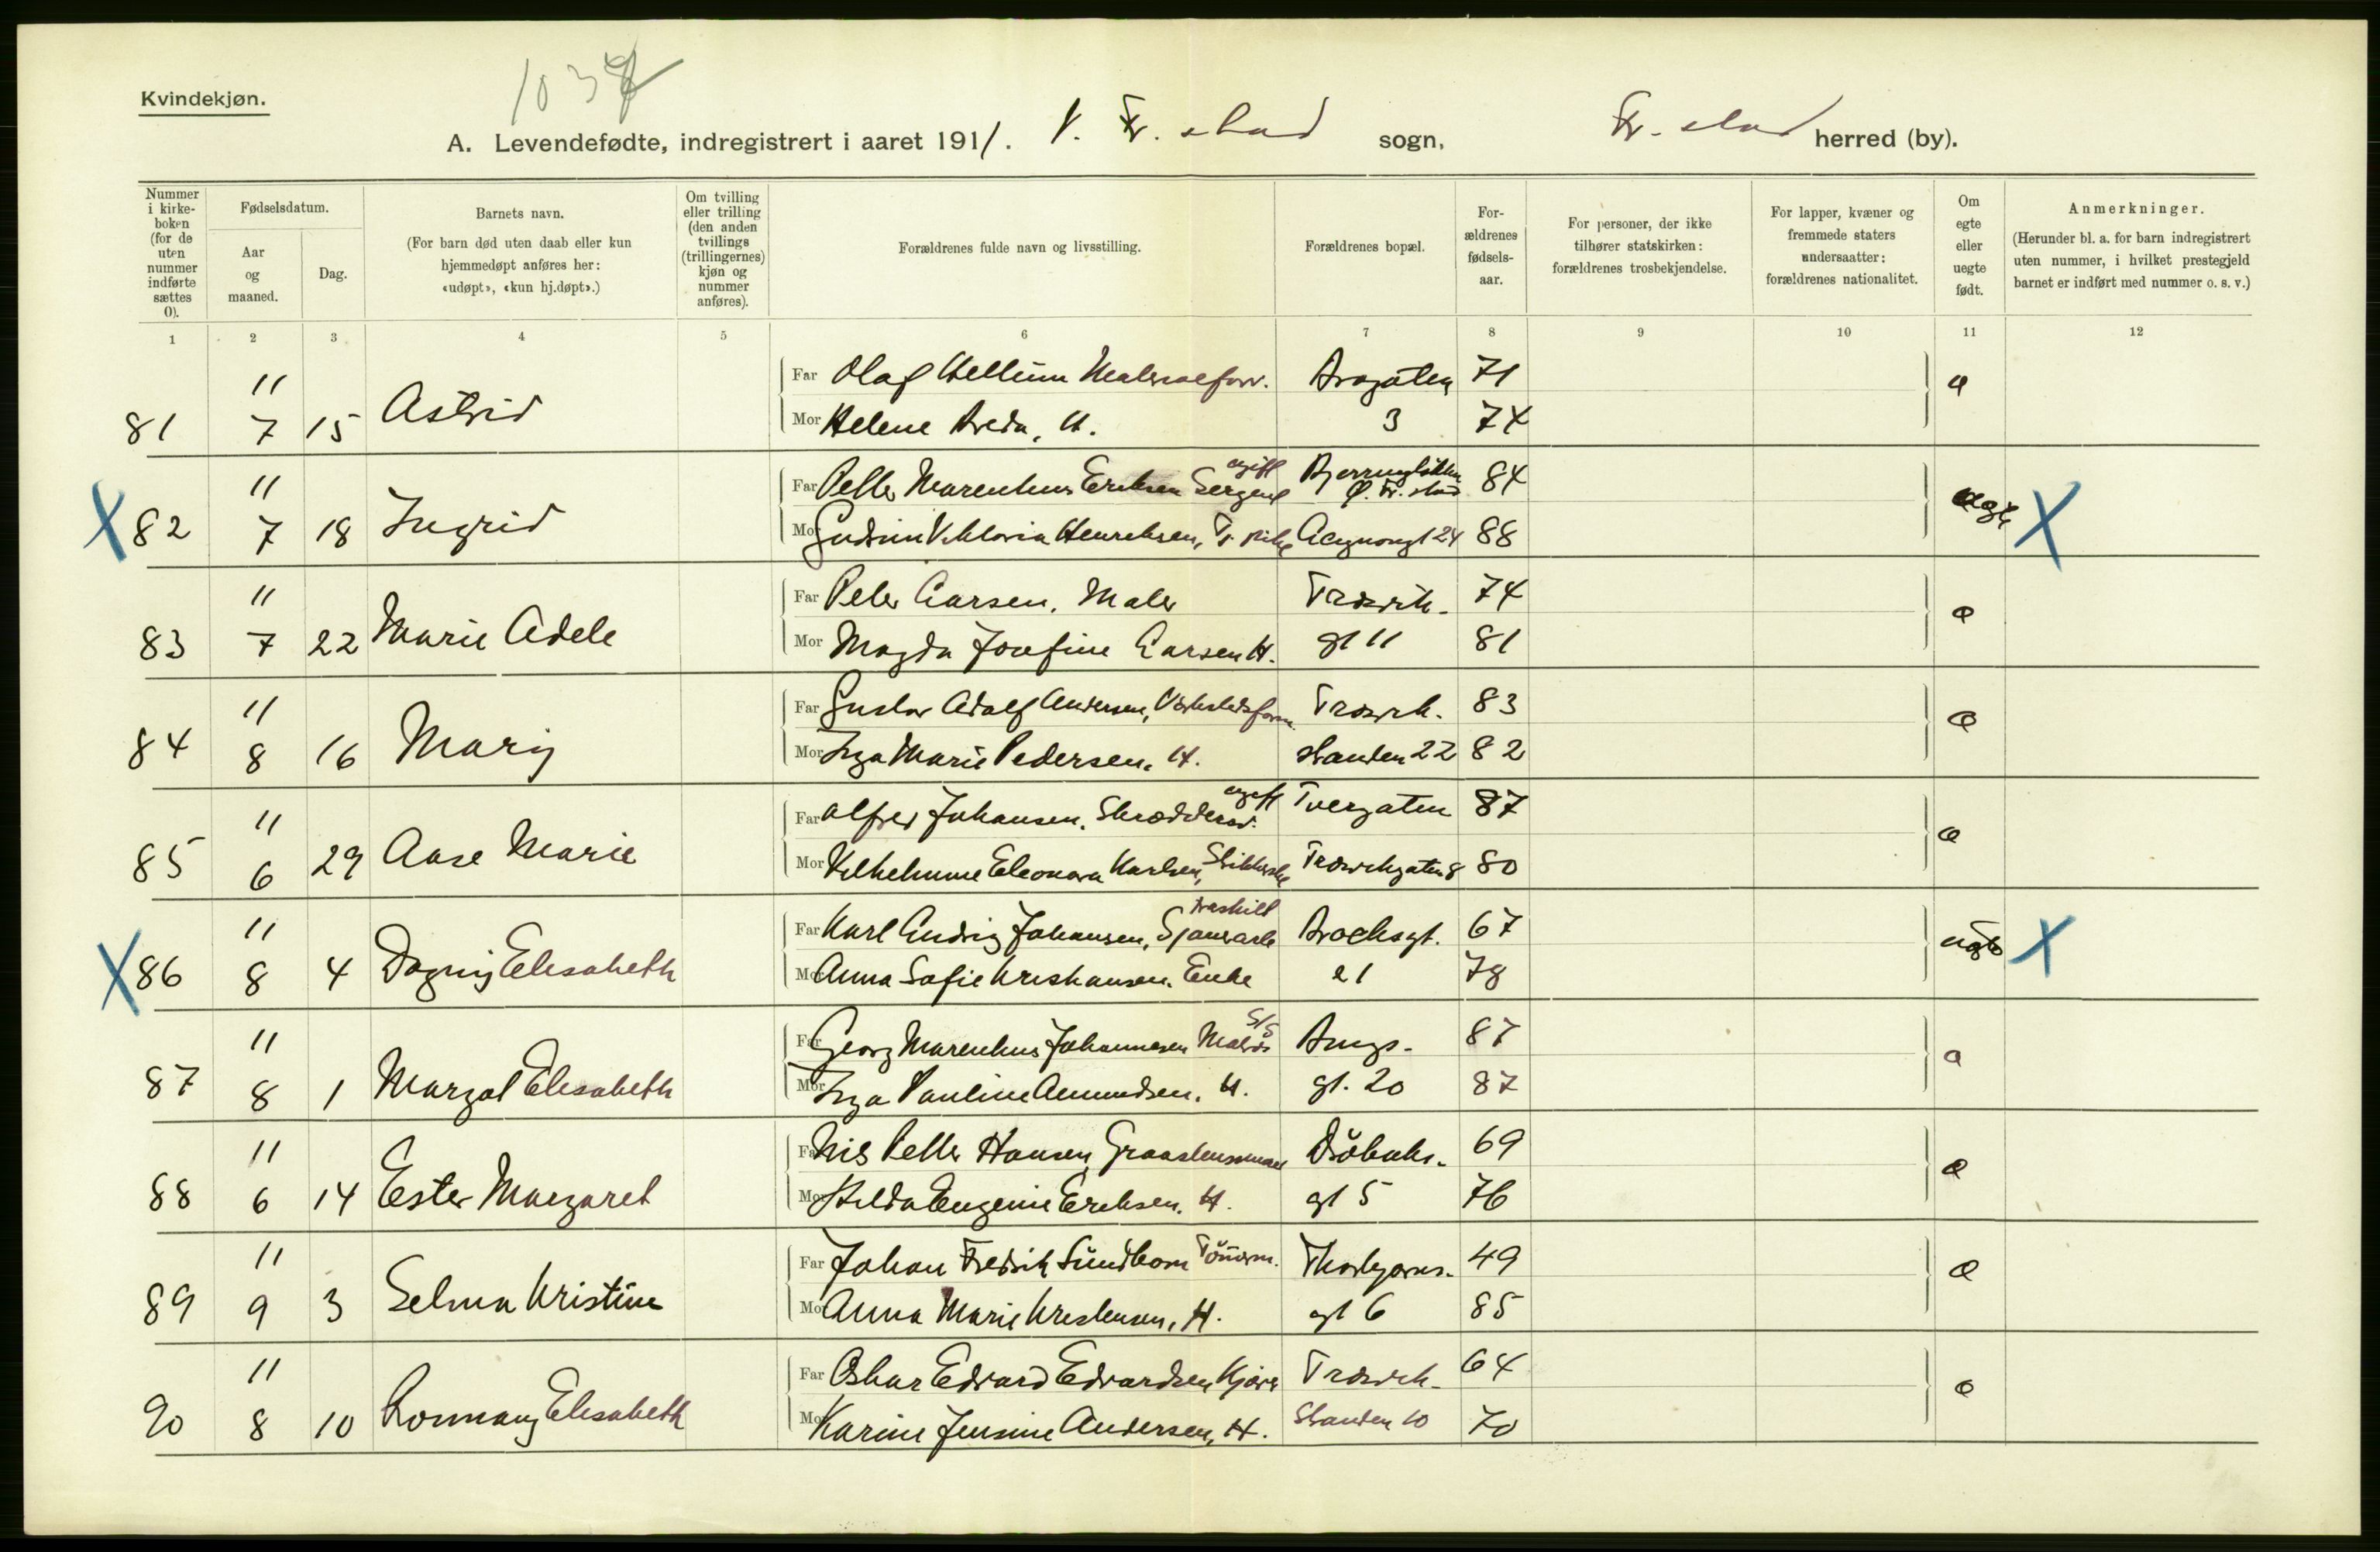 Kvindekjøn.
1037
A. Levendefødte, indregistrert i aaret 1911. V. Fr. stad sogn, Fr. stad herred (by).
Nummer i kirke-boken (for de uten nummer indførte sættes 0).
Fødselsdatum.
Aar og maaned.
Dag.
Barnets navn.
(For barn død uten daab eller kun hjemmedøpt anføres her: «udøpt», «kun hj.døpt».)
Om tvilling eller trilling (den anden tvillings (trillingernes) kjøn og nummer anføres).
Forældrenes fulde navn og livsstilling.
Forældrenes bopæl.
For-ældrenes fødsels-aar.
For personer, der ikke tilhører statskirken: forældrenes trosbekjendelse.
For lapper, kvæner og fremmede staters undersaatter: forældrenes nationalitet.
Om egte eller uegte født.
Anmerkninger.
(Herunder bl. a. for barn indregistrert uten nummer, i hvilket prestegjeld barnet er indført med nummer o. s. v.)
1 2 3 4 5 6 7 8 9 10 11 12
11 Far Olaf 71
81 7 15 Astrid Mor Helene H. 3 74
11 Far Marenius Eriksen Sergent ugift Fr. stad 84
X 82 7 18 Ingrid Mor Gudrun Viktoria Henriksen, 24 88 uegte X
11 Far Peter Larsen, Maler Trosvik- 74
83 7 22 Marie Adele Mor Magda Josefine Larsen H. gt 11 81 e
11 Far Gustav Adolf Andersen, Trosvik- 83
84 8 16 Mary Mor Inga Marie Pedersen, H. stranden 22 82 e
11 Far Alfred Johansen, Skræddersv. ugift Tvergaten 87
85 6 29 Aase Marie Mor Vilhelmine Eleonora Karlsen, Trosvikgaten 8 80 e
11 Far Karl Ludvig Johansen, fraskilt Brochsgt. 67
X 86 8 4 Dagny Elisabeth Mor Anna Sofie Kristiansen, Enke 21 78 uegte X
11 Far Georg Marenius Johannesen Matros S/S 87
87 8 1 Margot Elisabeth Mor Inga Pauline Amundsen, H. gt. 20 87 e
11 Far Nils Petter Hansen 69
88 6 14 Ester Margaret Mor Hilda Eugenie Eriksen, H. gt 5 76 e
11 Far Johan Fredrik Sundbom 49
89 9 3 Selma Kristine Mor Anna Marie Kristensen, H. gt 6 85 e
11 Far Oskar Edvard Edvardsen Trosvik- 64
90 8 10 Ronnaug Elisabeth Mor Karine Jensine Andersen, H. Stranden 10 70 e